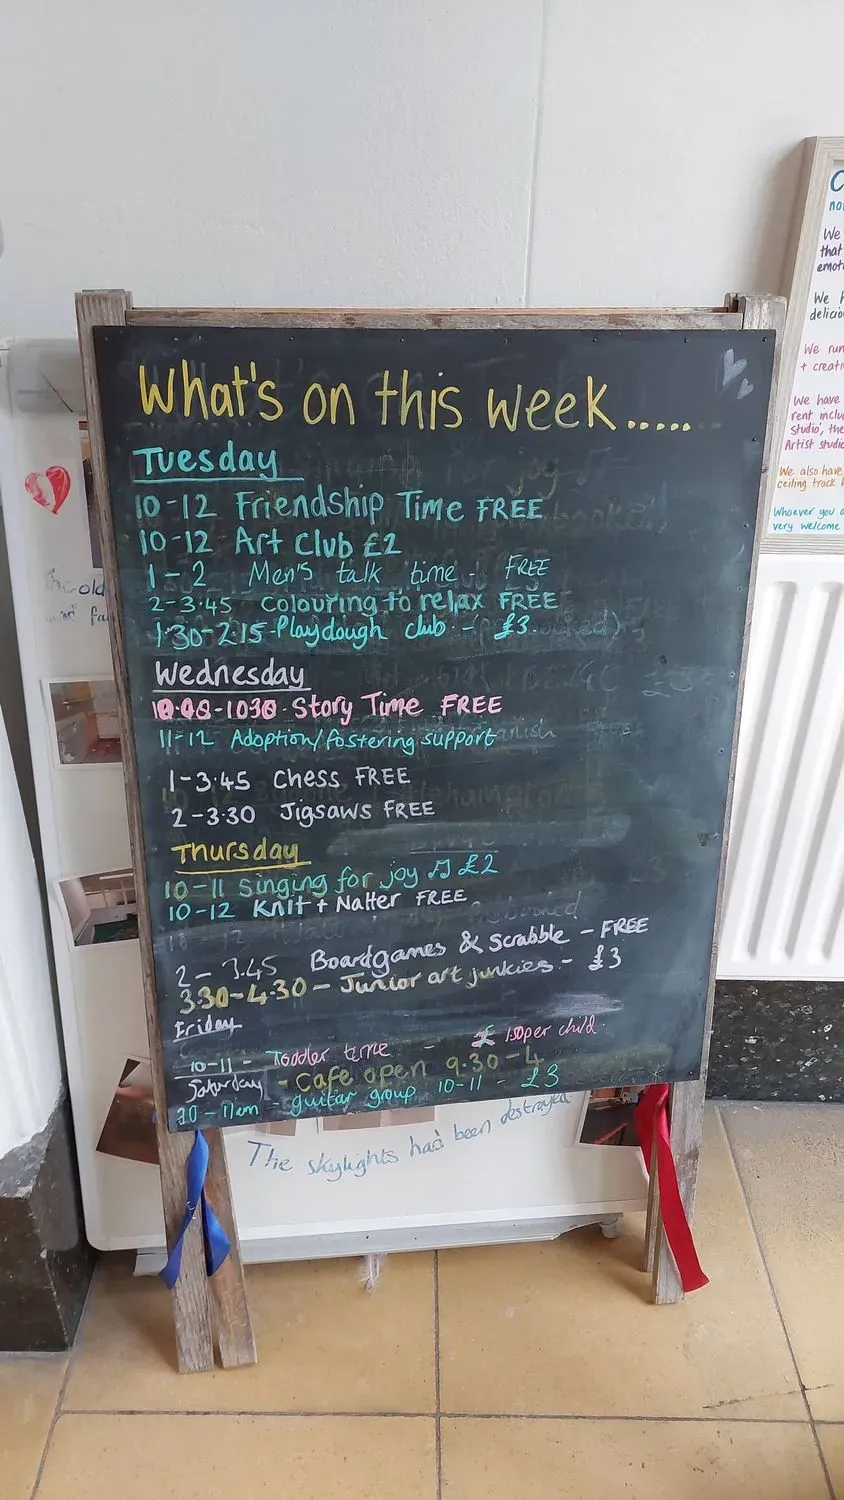 What's on this week.....
Tuesday
10-12 Friendship Time FREE
10-12 Art Club £2
1-2 Men's talk time - FREE
2-3.45 Colouring to relax FREE
1.30-2.15 - Playdough club - £3
Wednesday
Story Time FREE
11-12 Adoption/fostering support
1-3.45 Chess FREE
2-3.30 Jigsaws FREE
Thursday
10-11 Singing for joy ♫ £2
10-12 Knit + Natter FREE
2-3.45 Boardgames & Scrabble - FREE
3.30-4.30 - Junior art junkies - £3
Friday
10-11 - Toddler time - £1.50 per child.
Saturday - Cafe open 9.30-4
10-11am - guitar group 10-11 - £3
The skylights had been destroyed
The old
We
that
emot
We
delicio
We run
+ creati
We have
rent inclu
studio', the
Artist studio
We also have
ceiling track
Whoever you a
very welcome